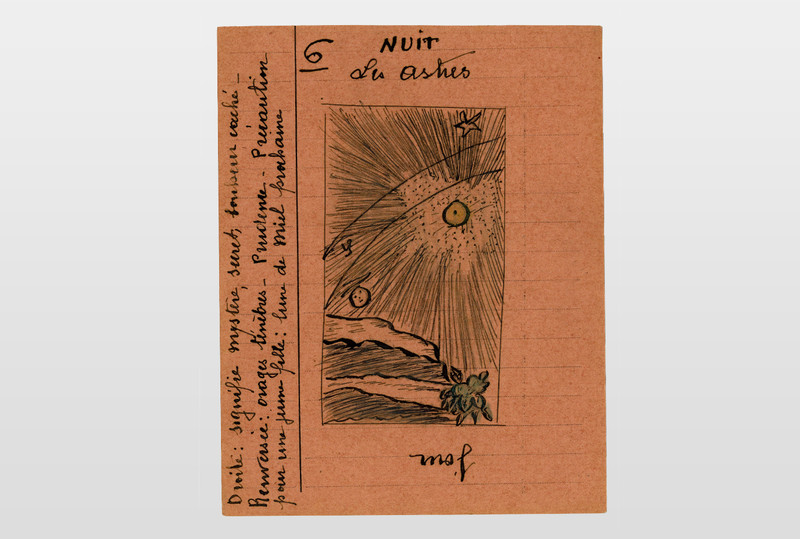 6
NUIT
Les astres
Droite : signifie mystère, secret, bonheur caché -
Renversée : orages ténèbres - Prudence - Précaution
pour une jeune fille : lune de Miel prochaine
jour